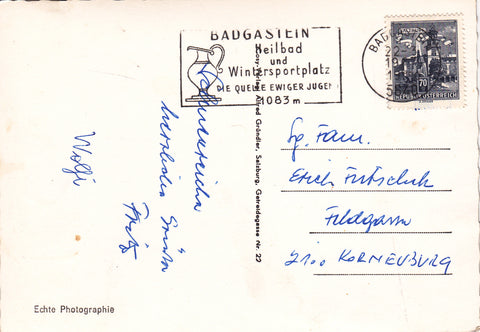 BADGASTEIN
Heilbad
und
Wintersportplatz
DIE QUELLE EWIGER JUGEND
1083 m
70
REPUBLIK ÖSTERREICH
herzliche Grüße
Fritz
Wolfi
Alfred Gründler, Salzburg, Getreidegasse Nr. 22
Fam.
Erich
Feldgasse
2100 KORNEUBURG
Echte Photographie